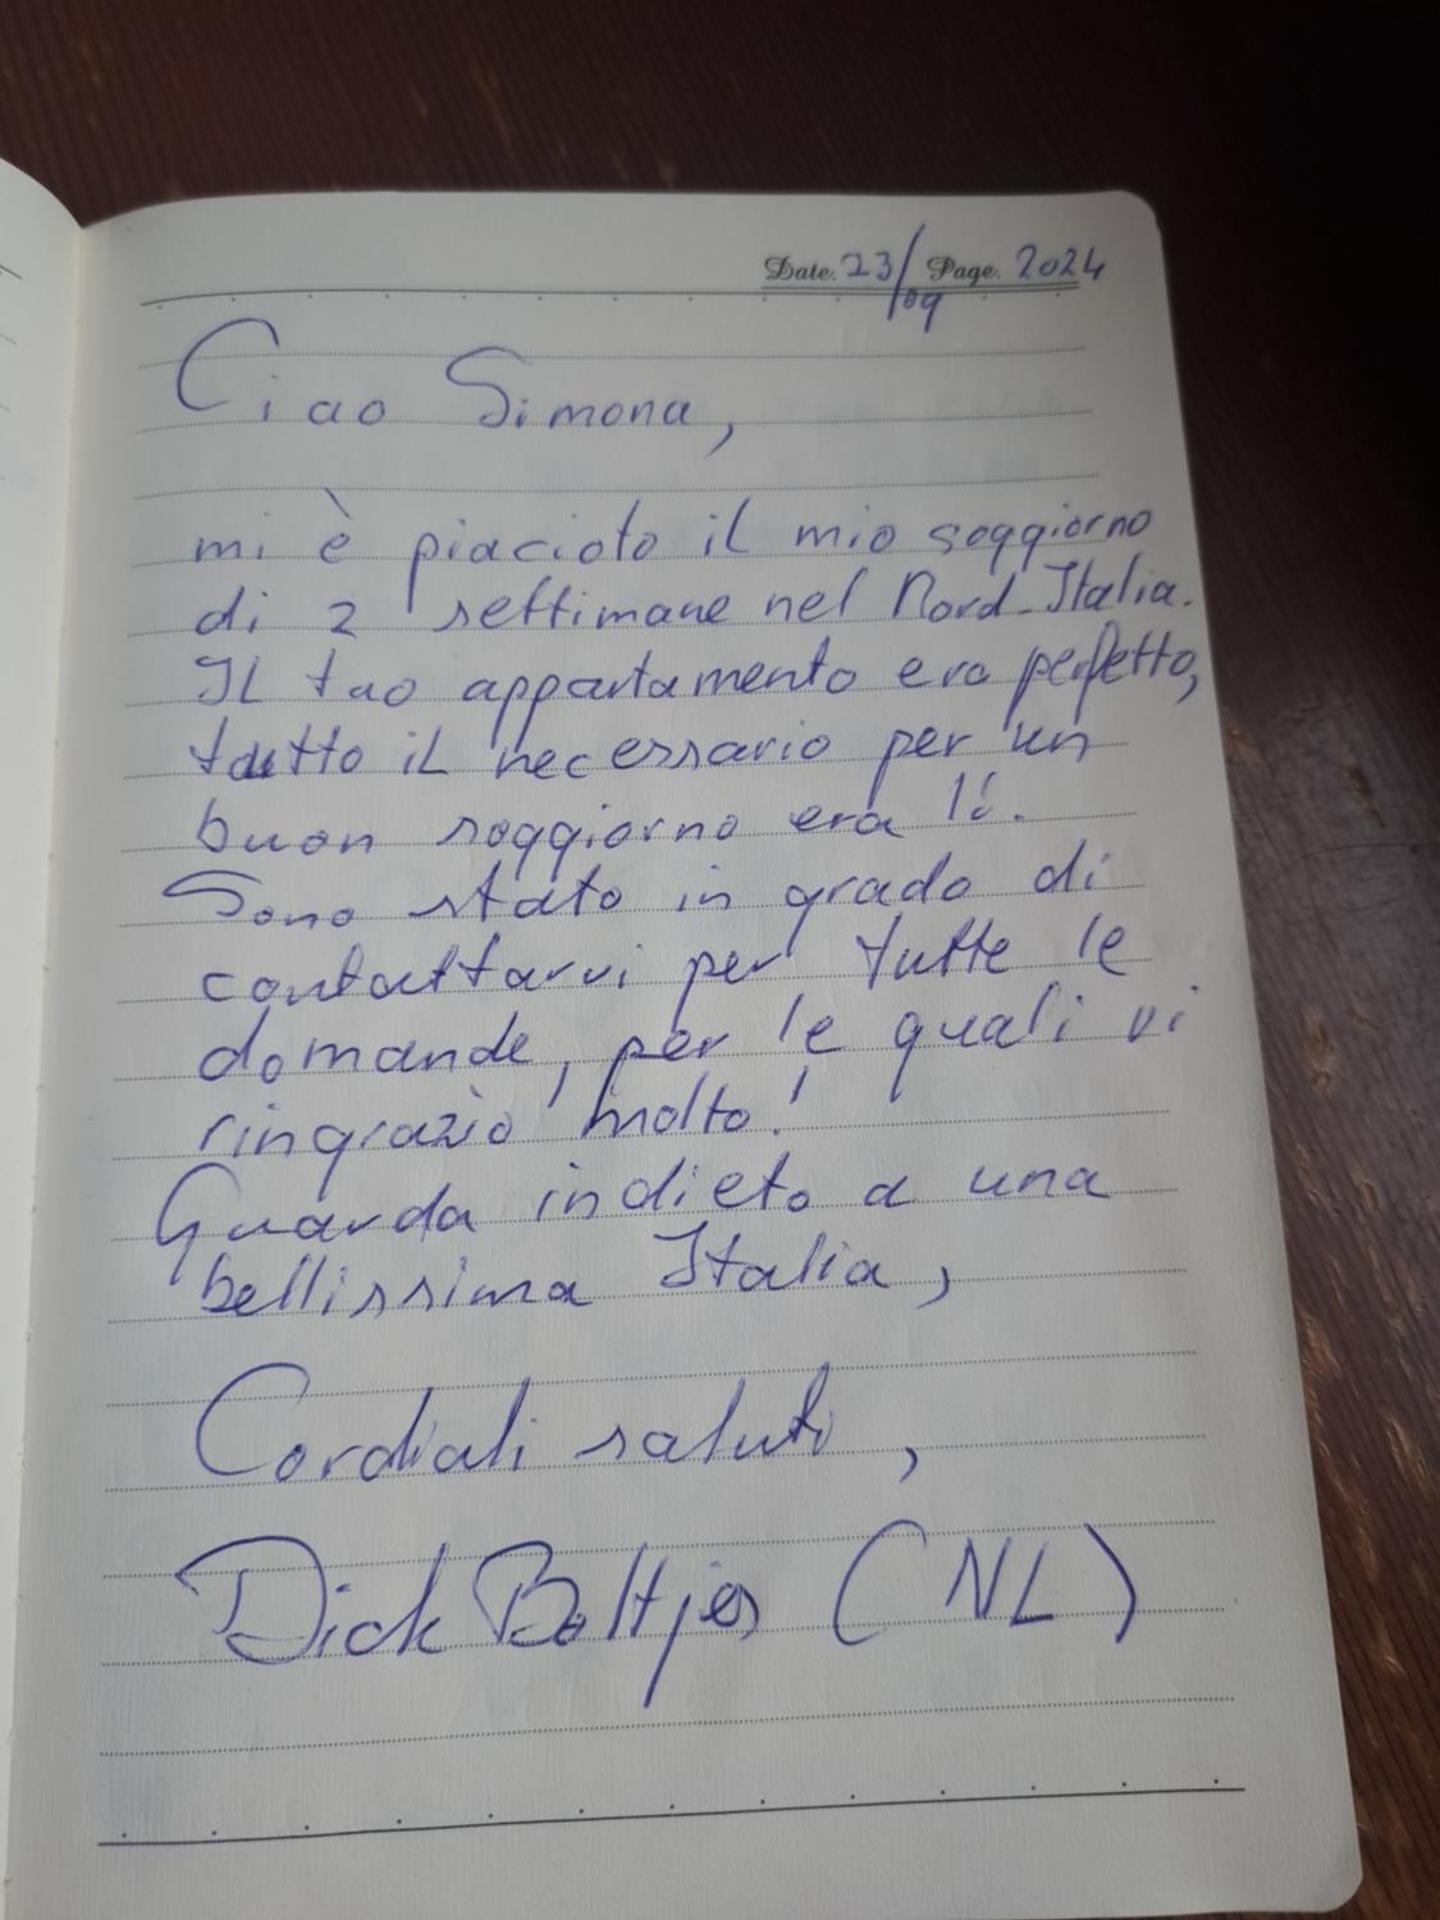 Date. 23/09 Page. 2024
Ciao Simona,
mi è piacioto il mio soggiorno
di 2 settimane nel Nord-Italia.
Il tuo appartamento era perfetto,
tutto il necessario per un
buon soggiorno era lì.
Sono stato in grado di
contattarvi per tutte le
domande, per le quali vi
ringrazio molto!
Guarda indieto a una
bellissima Italia,
Cordiali saluti,
Dick Boltjes (NL)